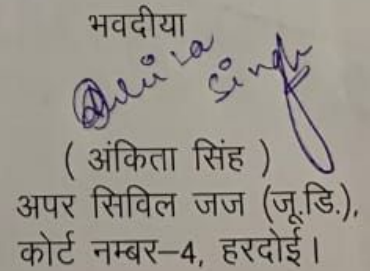 भवदीया
Ankita Singh
( अंकिता सिंह )
अपर सिविल जज (जू.डि.),
कोर्ट नम्बर–4, हरदोई।